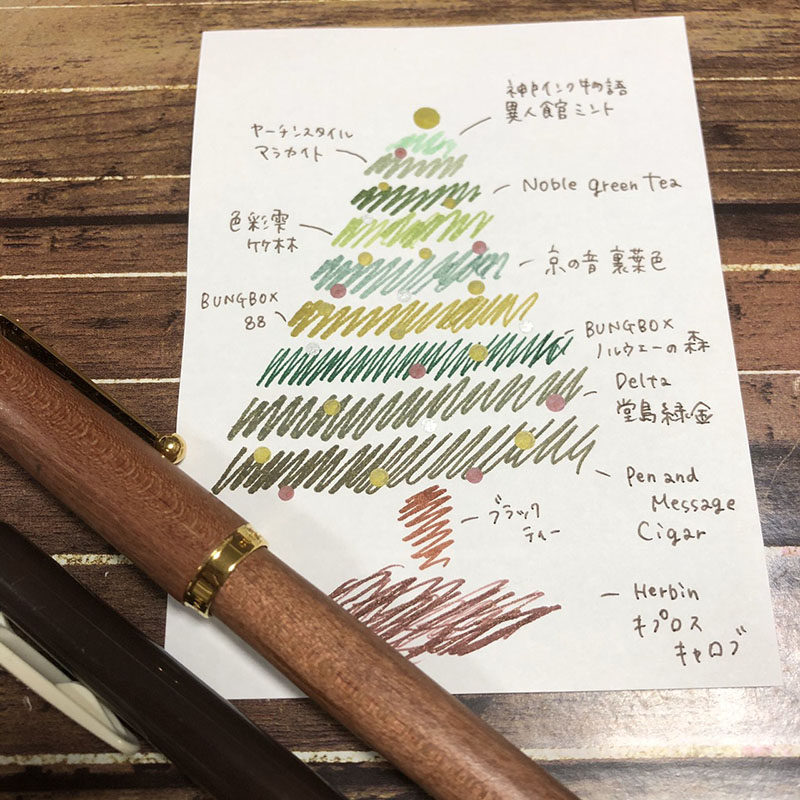 神戸インク物語
異人館ミント
ヤーチンスタイル
マラカイト
Noble green tea
色彩雫
竹林
京の音 裏葉色
BUNGBOX
88
BUNGBOX
ノルウェーの森
Delta
堂島緑金
Pen and
Message
Cigar
ブラック
ティー
Herbin
キプロス
キャロブ